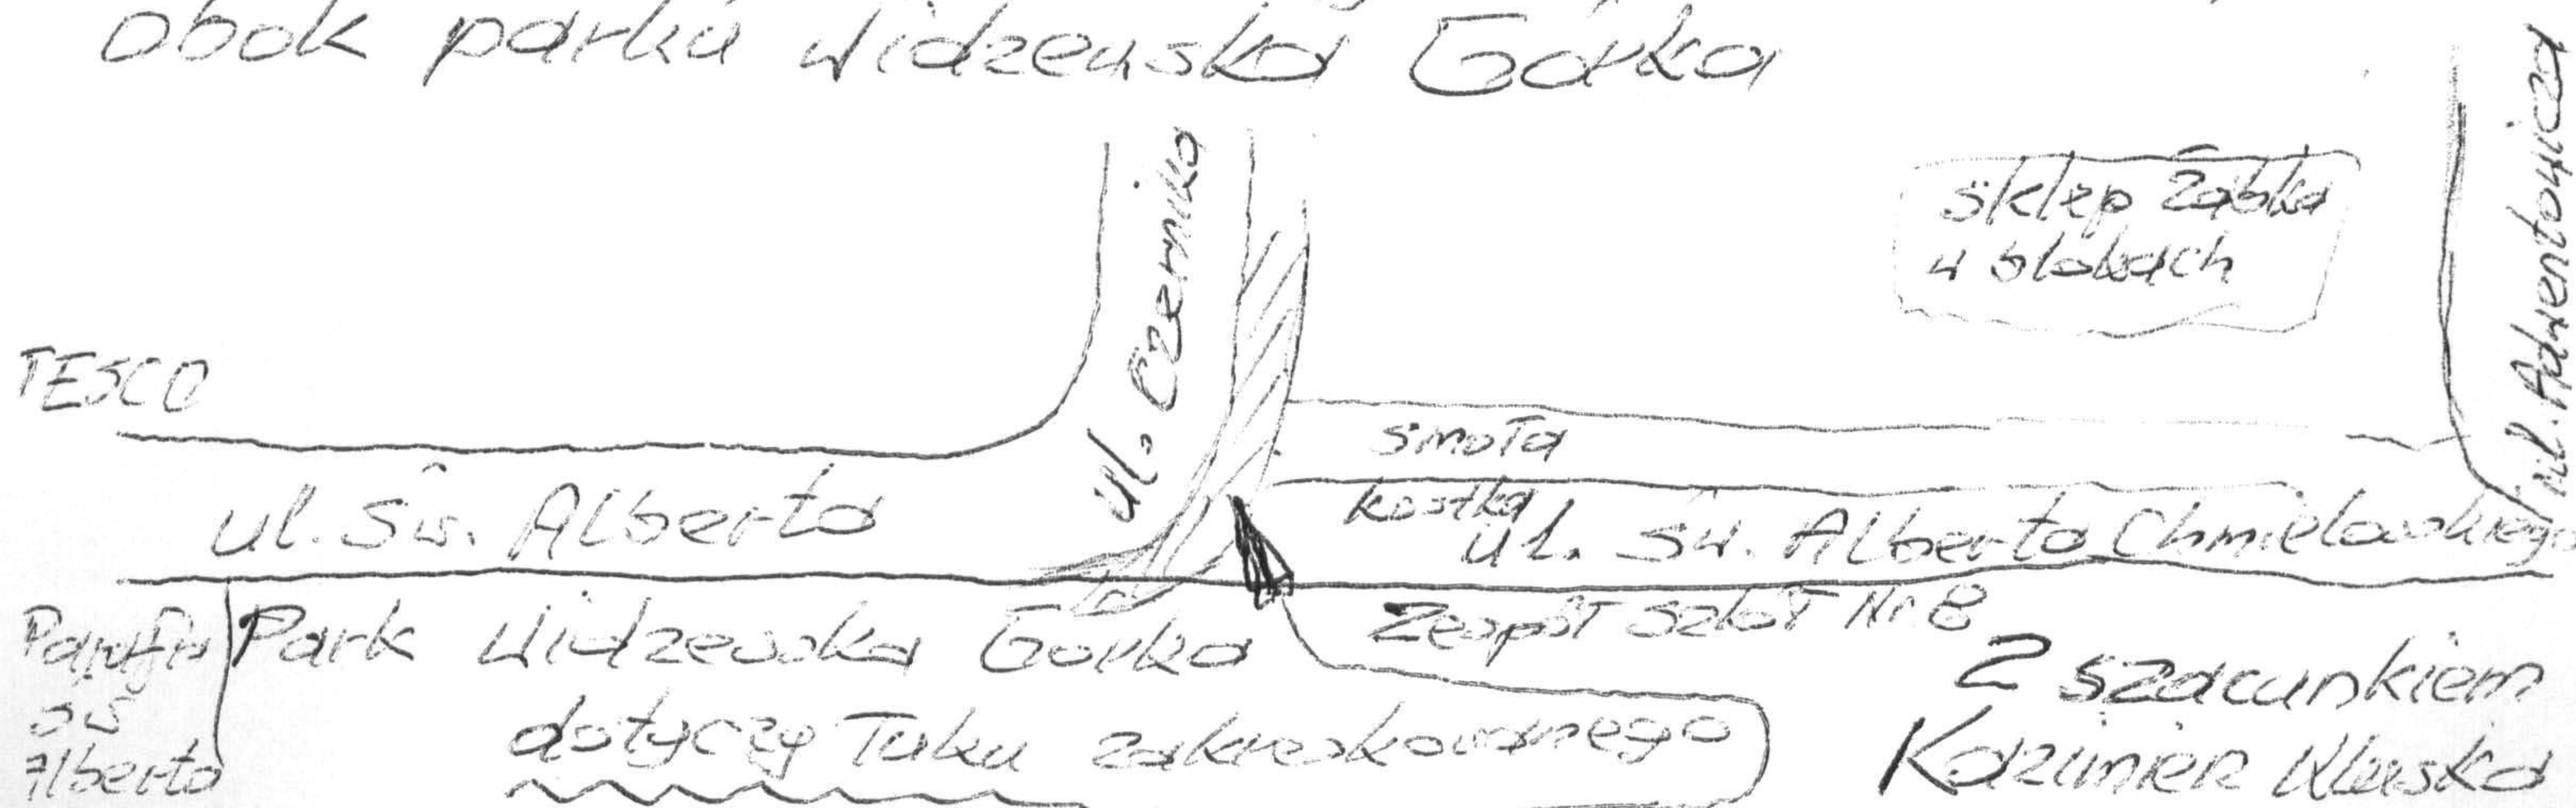 obok parku Widzewska Górka
ul. Czernika
sklep Żabka
w blokach
ul. Adwentowicza
TESCO
smoła
kostka
ul. Św. Alberta
ul. Św. Alberta Chmielowskiego
Zespół Szkół Nr 8
Park Widzewska Górka
Alberta
dotyczy łuku zakreskowanego
Z szacunkiem
Kazimierz